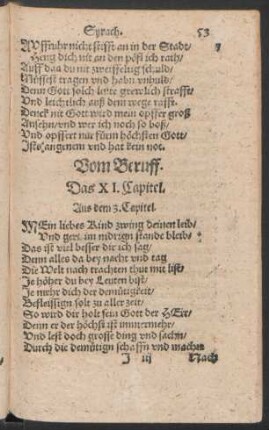 Syrach. 53
Auffruhr nicht stifft an in der Stadt/
Heng dich nit an den pöfl ich rath/
Auff daz du nit zweiffeltig schuld/
Müssest tragen und habn unhuld/
Denn Gott solch leute grewlich strafft
Und leichtlich auß dem wege rafft.
Denck nit Gott wird mein opffer groß
Ansehn/ und wer ich noch so böß/
Und opffert nur fürm höchsten Gott/
Ists angenem und hat kein not.
Vom Beruff.
Das XI. Capitel.
Aus dem 3. Capitel.
MEin liebes Kind zwing deinen leib/
Und gern im nidrign stande bleib/
Das ist viel besser dir ich sag/
Denn alles da bey nacht und tag
Die Welt nach trachten thut mit list/
Je höher du bey Leuten bist/
Je mehr dich der demütigkeit/
Befleissign solt zu aller zeit/
So wird dir holt sein Gott der HErr/
Denn er der höchst ist immermehr/
Und lest doch grosse ding und sachn/
Durch die demütign schaffn und machn
J iij Nach